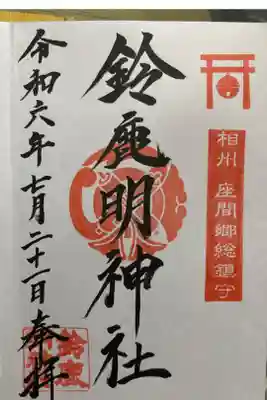 相州 座間郷総鎮守
鈴鹿明神社
令和六年七月二十一日 奉拝